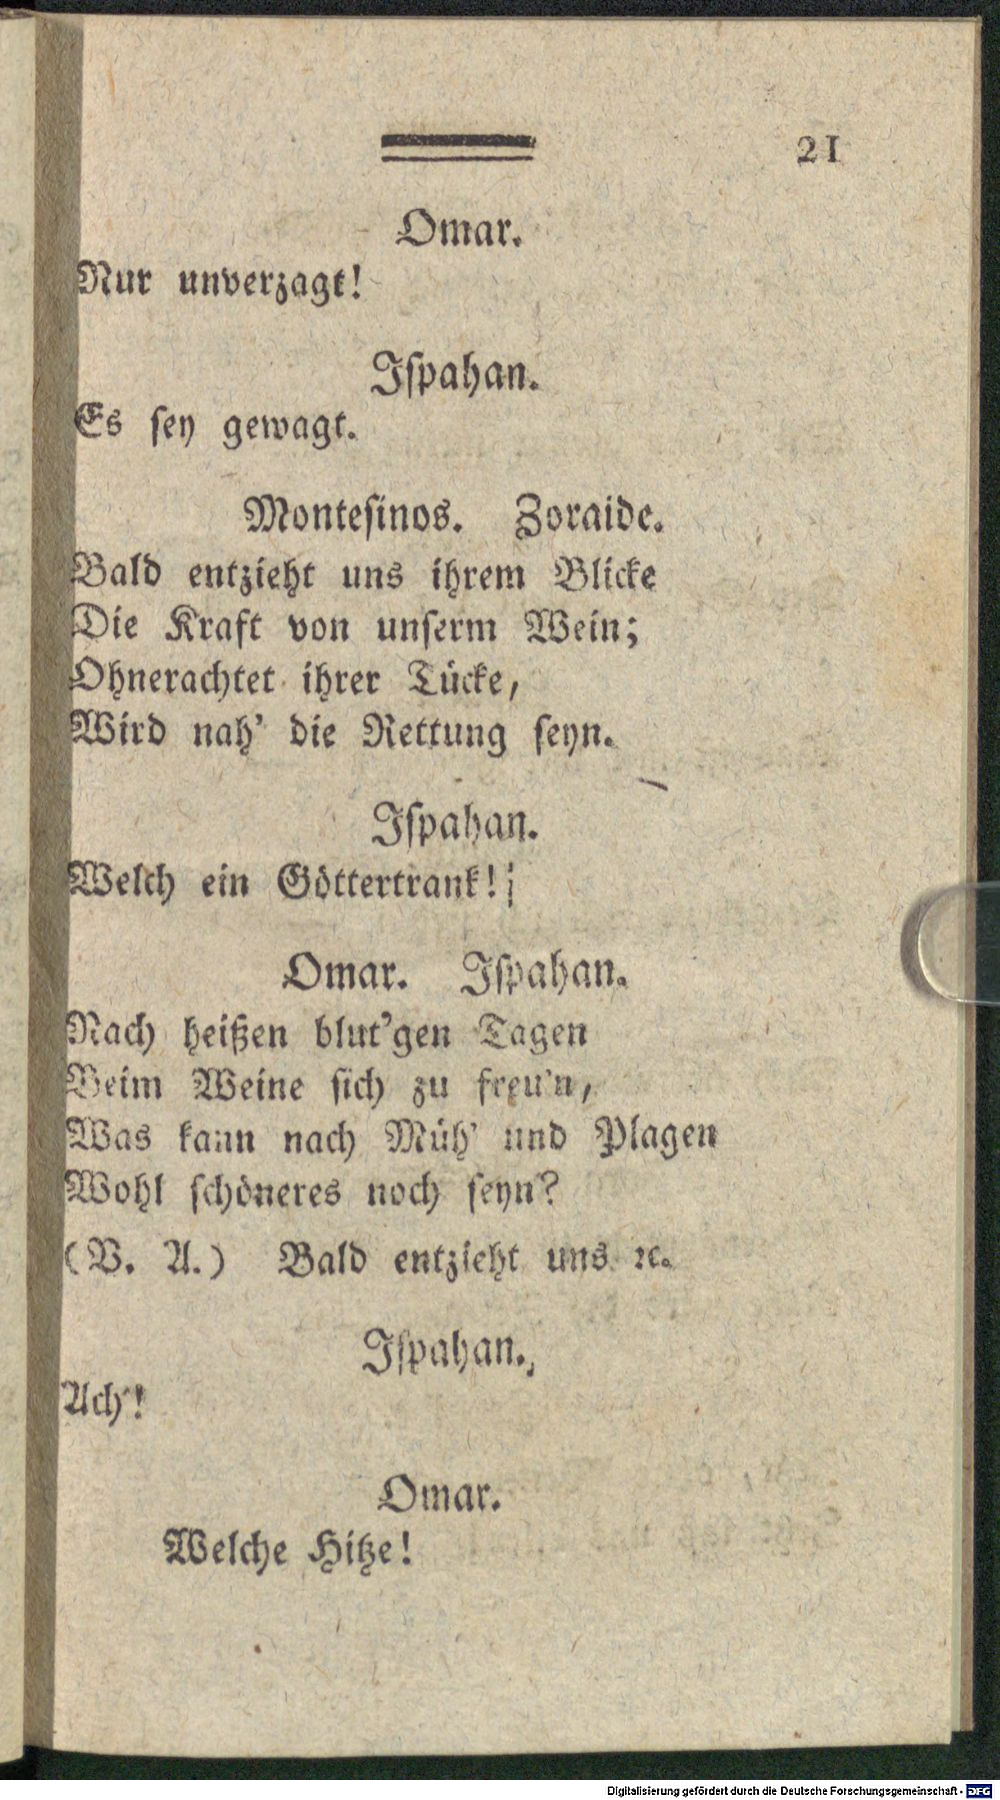 21
Omar.
Nur unverzagt!
Iſpahan.
Es ſey gewagt.
Monteſinos. Zoraide.
Bald entzieht uns ihrem Blicke
Die Kraft von unſerm Wein;
Ohnerachtet ihrer Tücke,
Wird nah' die Rettung ſeyn.
Iſpahan.
Welch ein Göttertrank!
Omar. Iſpahan.
Nach heißen blut'gen Tagen
Beim Weine ſich zu freu'n,
Was kann nach Müh' und Plagen
Wohl ſchöneres noch ſeyn?
(V. A.) Bald entzieht uns ꝛc.
Iſpahan.
Ach!
Omar.
Welche Hitze!
Digitalisierung gefördert durch die Deutsche Forschungsgemeinschaft - DFG